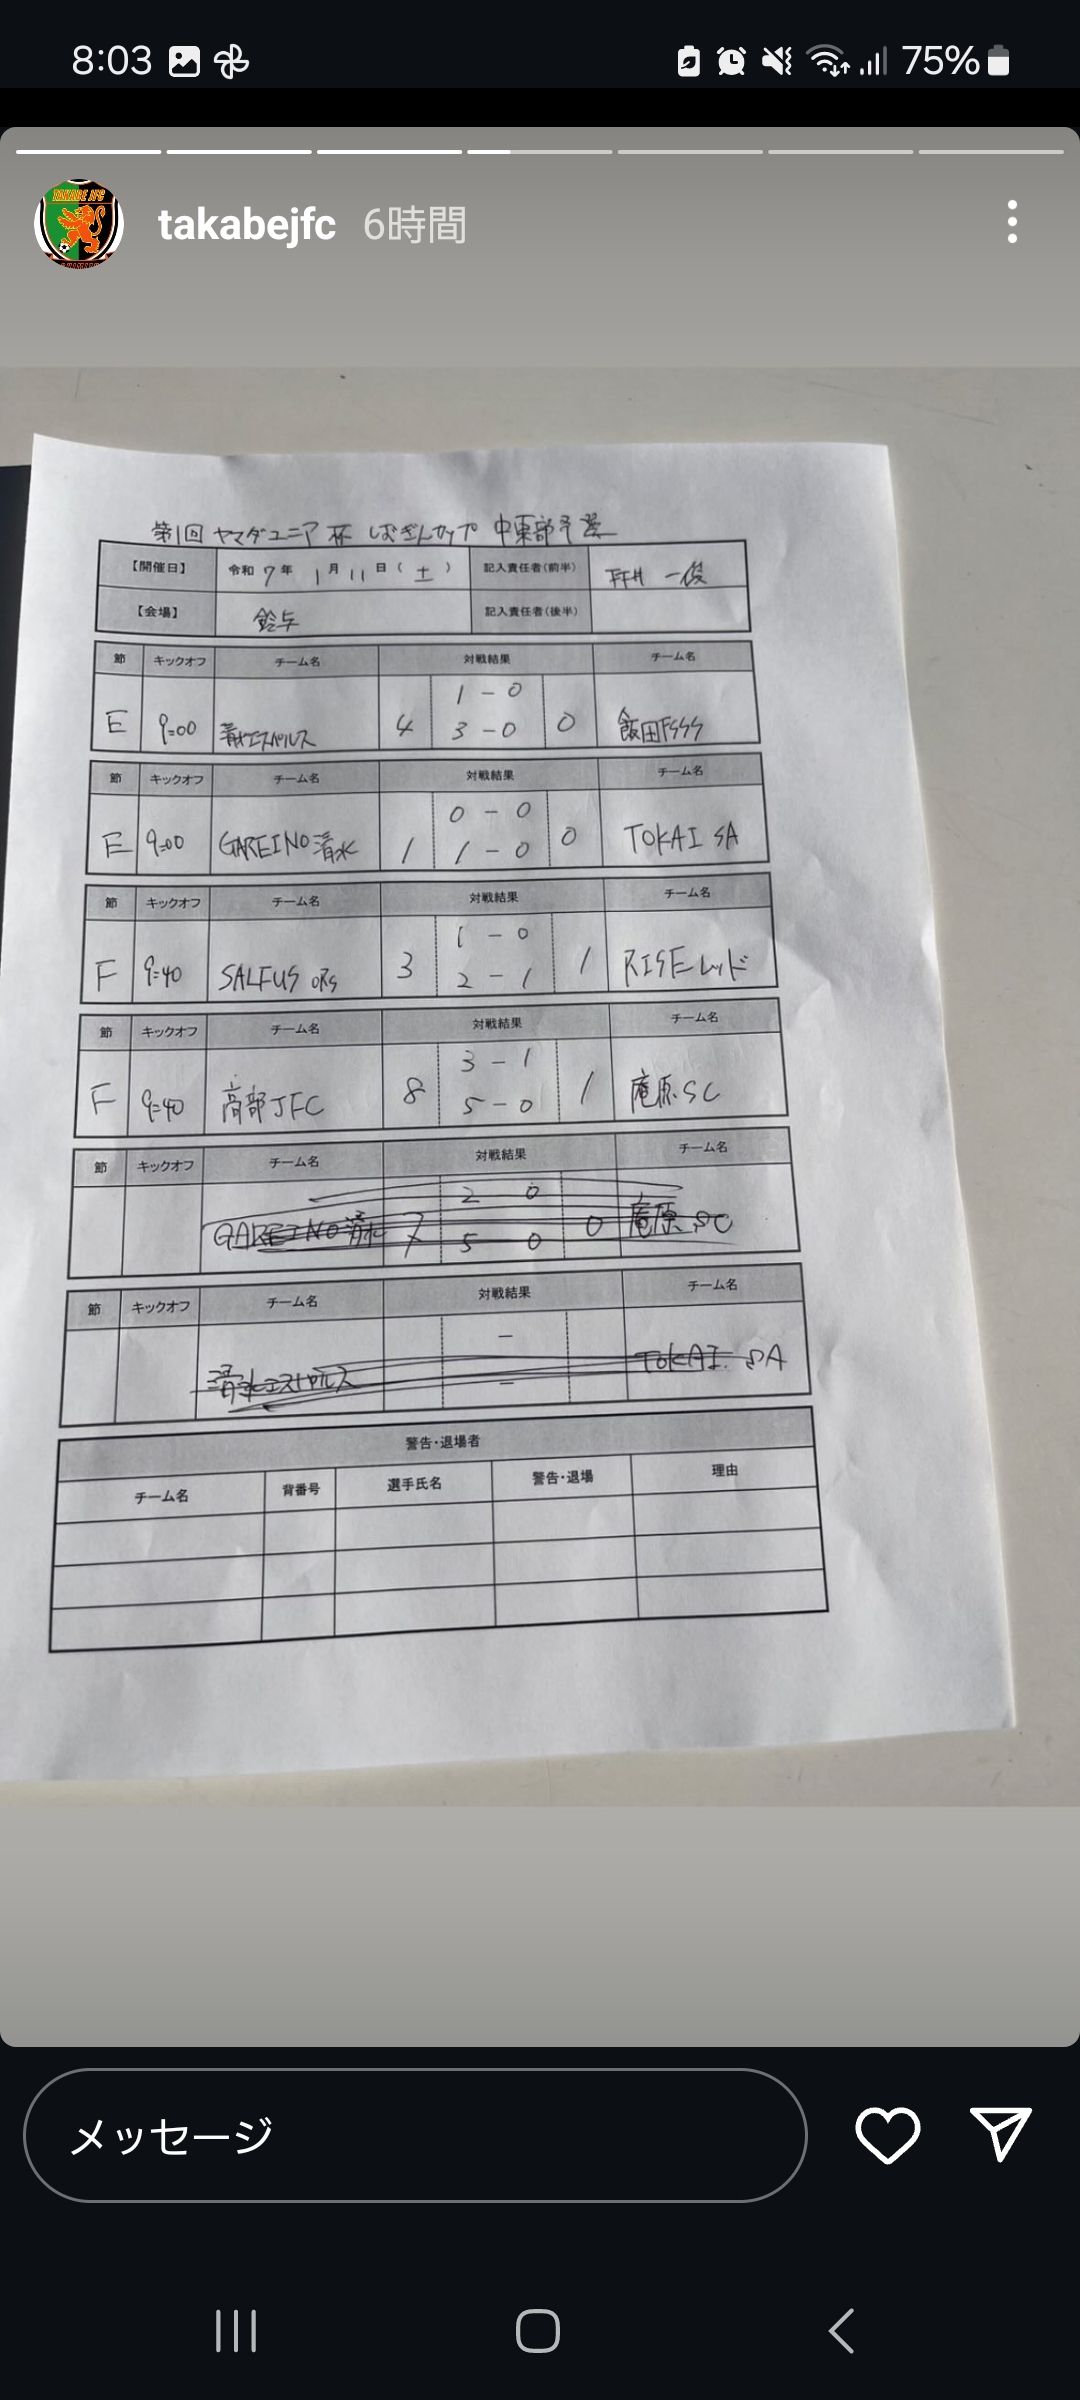 8:03
75%
TAKABE JFC
takabejfc 6時間
第1回 ヤマダユニア杯 しずぎんカップ 中東部予選
【開催日】 令和 7年 1月 11日(土) 記入責任者(前半) 一俊
【会場】 鈴与 記入責任者(後半)
節 キックオフ チーム名 対戦結果 チーム名
1 - 0
E 9:00 清水エスパルス 4 3 - 0 0 飯田FSSS
節 キックオフ チーム名 対戦結果 チーム名
0 - 0
E 9:00 GAREINO清水 1 1 - 0 0 TOKAI SA
節 キックオフ チーム名 対戦結果 チーム名
1 - 0
F 9:40 SALFUS oRs 3 2 - 1 1 RISEレッド
節 キックオフ チーム名 対戦結果 チーム名
3 - 1
F 9:40 高部JFC 8 5 - 0 1 庵原SC
節 キックオフ チーム名 対戦結果 チーム名
2 0
GAREINO清水 7 5 0 0 庵原SC
節 キックオフ チーム名 対戦結果 チーム名
-
清水エスパルス - TOKAI SA
警告・退場者
チーム名 背番号 選手氏名 警告・退場 理由
メッセージ